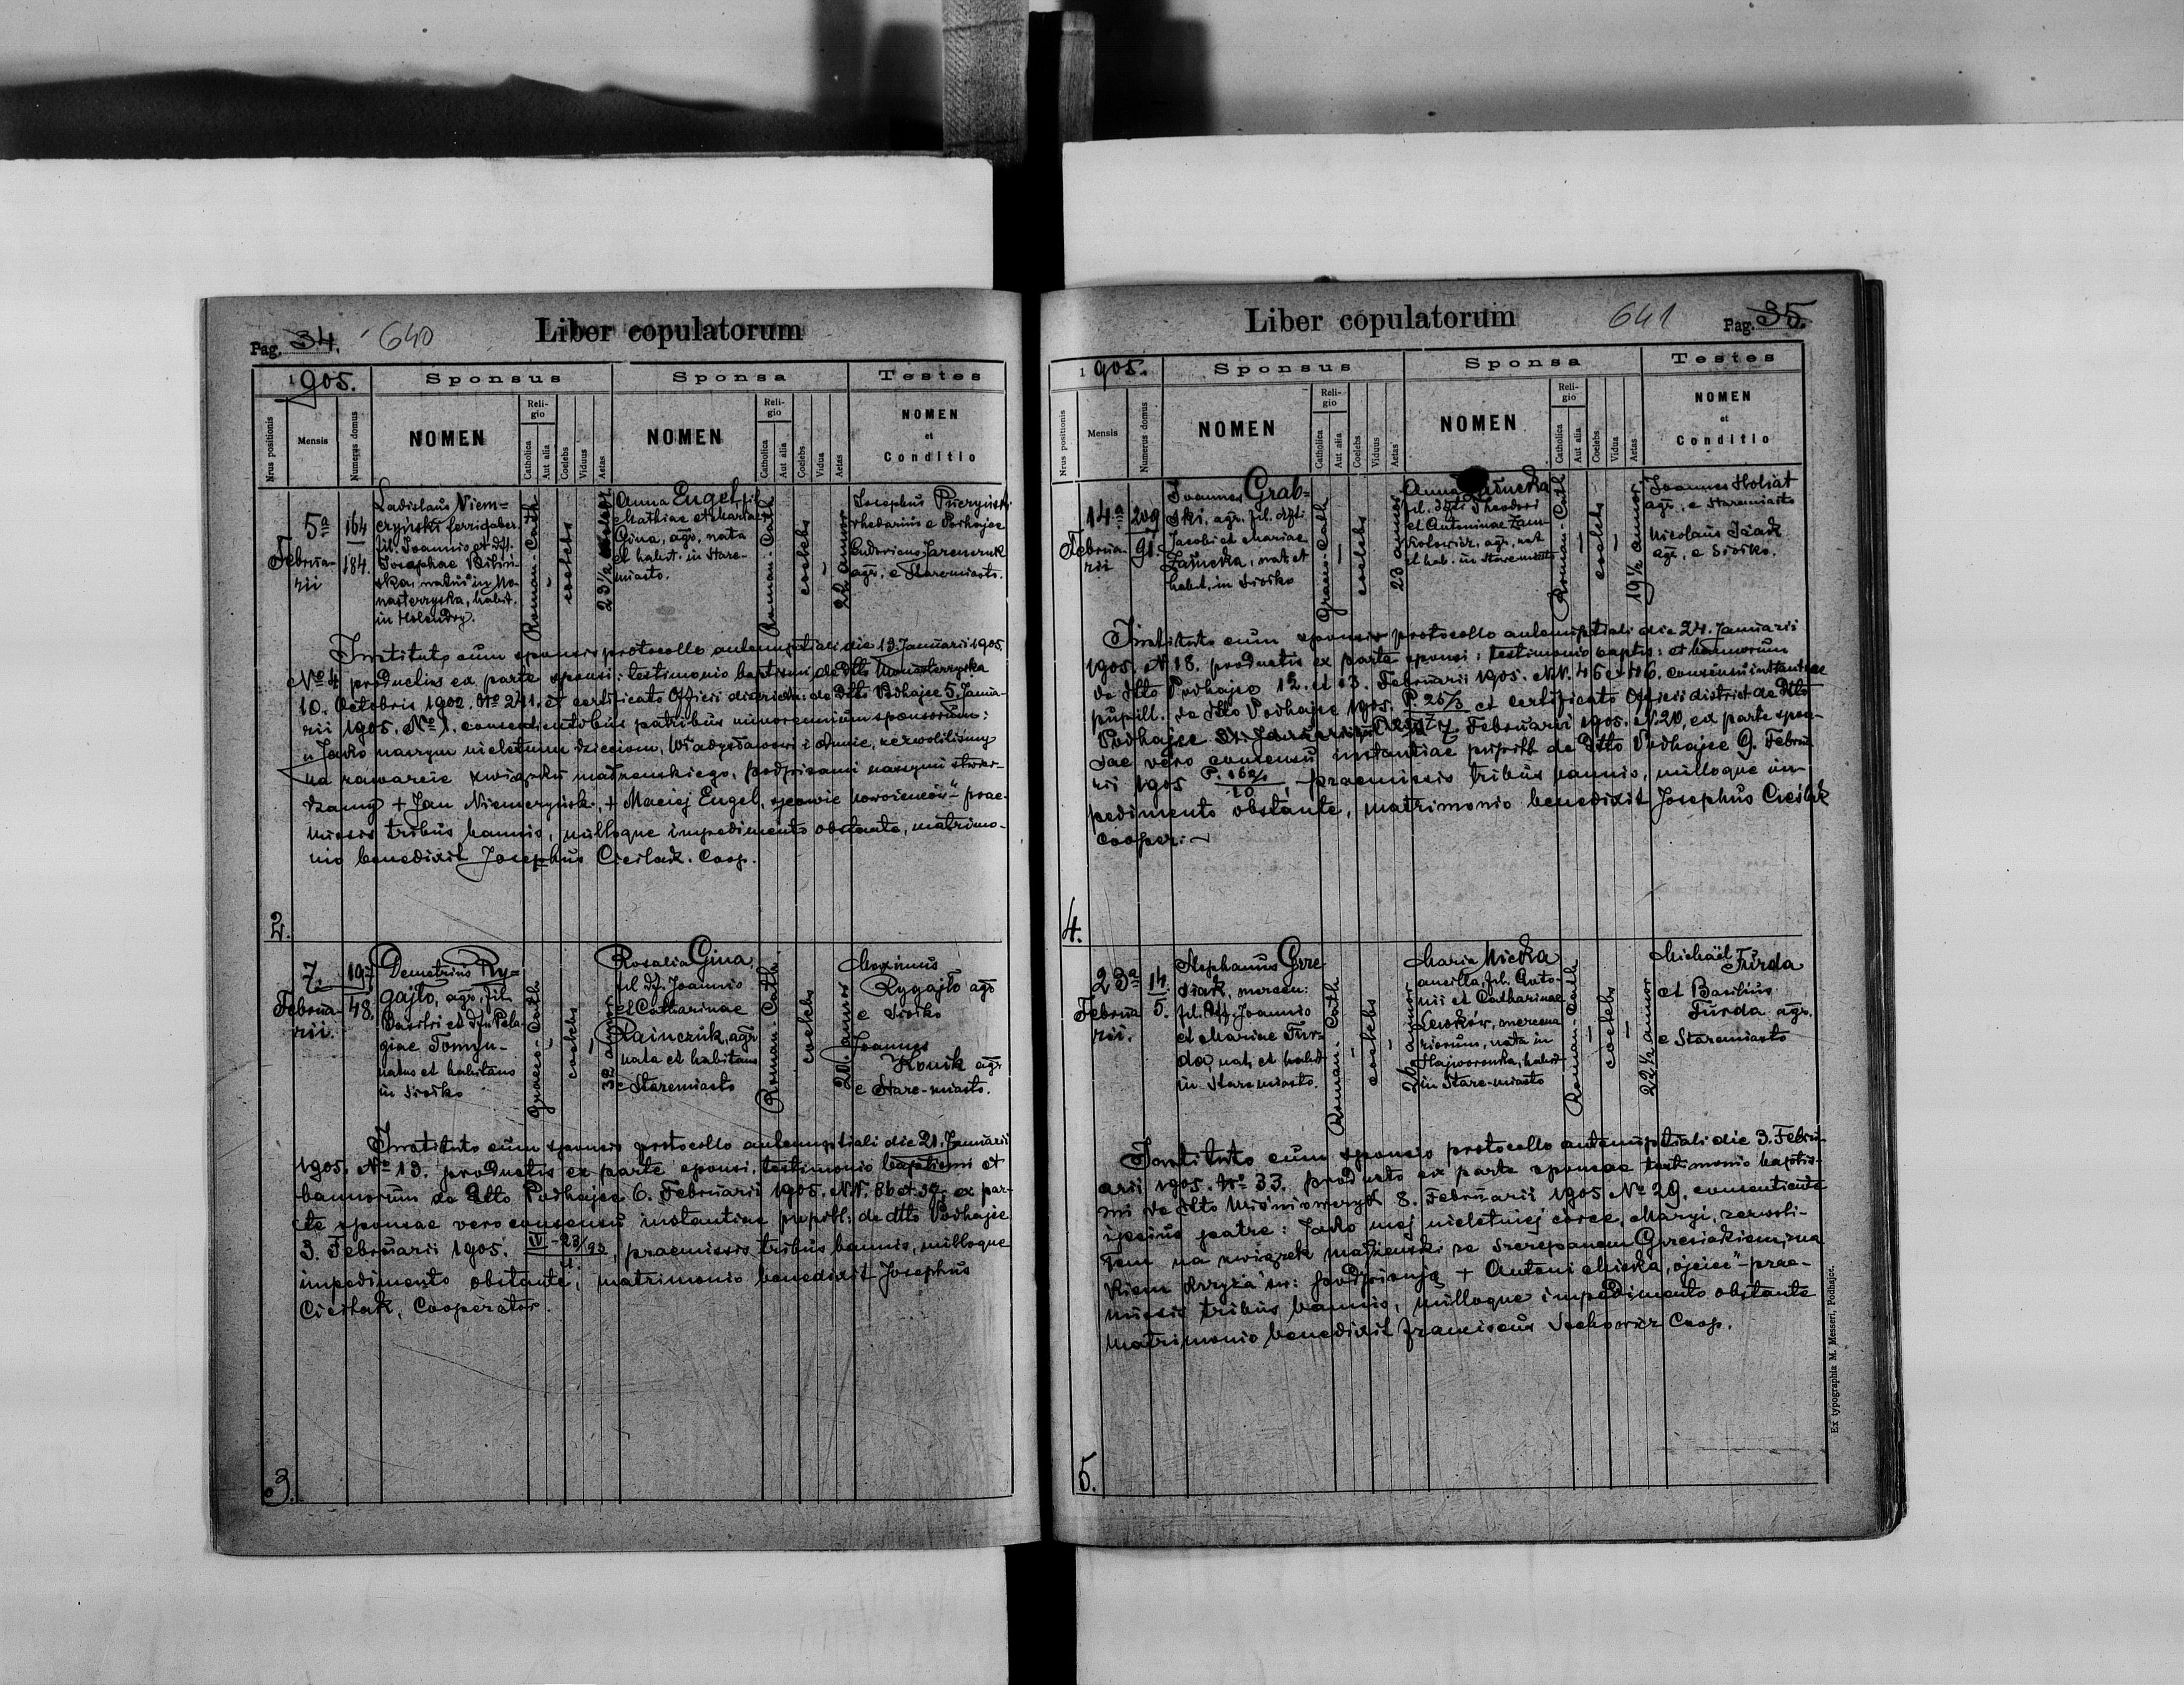 Pag. 34. 640 Liber copulatorum
1905. Sponsus Sponsa Testes
Nrus positionis Mensis Numerus domus NOMEN Religio Catholica Aut alia Coelebs Viduus Aetas NOMEN Religio Catholica Aut alia Coelebs Vidua Aetas NOMEN et Conditio
2.
5ª Februarii
164
184.
Ladislaus Niem=
czyński ferri faber.
fil. Joannis et dft.
Josephae
ska, natus in Mo-
nasterzyska, habit.
in Holendry.
Roman-Cath
coelebs
23 1/2
Anna Engel, fil.
Mathiae et Mariae
Gina, agr., nata
et habit. in Stare-
miasto.
Roman-Cath
coelebs
22 annor
Josephus
rhedarius e Podhajce
Ludovicus Jaremczuk
agr., e Staremiasto.
Instituto cum sponsis protocollo antenuptiali die 13. Januarii 1905.
No 4 productis ex parte sponsi: testimonio baptismi de dtto Monasterzyska
10. Octobris 1902. No 241. et certificato Officii district: de dtto Podhajce 5. Janua-
rii 1905. No 1. consentientibus patribus minorennium sponsorum:
„Jako naszym nieletnim dzieciom, Władysławowi i Annie, zezwoliliśmy
na zawarcie związku małżeńskiego, podpisami naszymi stwier-
dzamy + Jan Niemczyński, + Maciej Engel, ojcowie nowożeńców" - prae-
missis tribus bannis, nulloque impedimento obstante, matrimo-
nio benedixit Josephus Cieślak. Coop.
3.
7. Februarii.
197
48.
Demetrius Ry=
gajło, agr., fil.
Basilii et dftae Pela-
giae Tomyn-
natus et habitans
in Siołko
Graeco-Cath
coelebs
32 annor
Rosalia Gina,
fil dft. Joannis
et Catharinae
Hainczuk, agr
nata et habitans
e Staremiasto
Roman-Cath
coelebs
20. annor
Maximus
Rygajło agr
e Siołko
Joannes
Konik agr
e Stare-miasto.
Instituto cum sponsis protocollo antenuptiali die 21. Januarii
1905. No 13. productis ex parte sponsi, testimonio baptismi et
bannorum de dtto Podhajce 6. Februarii 1905. N.N. 36 et 37. ex par-
te sponsae vero consensu instantiae pupill: de dtto Podhajce
3. Februarii 1905. IV-23/93, praemissis tribus bannis, nulloque
impedimento obstante, matrimonio benedixit Josephus
Cieślak, Cooperator.
Liber copulatorum 641 Pag. 35.
1905. Sponsus Sponsa Testes
Nrus positionis Mensis Numerus domus NOMEN Religio Catholica Aut alia Coelebs Viduus Aetas NOMEN Religio Catholica Aut alia Coelebs Vidua Aetas NOMEN et Conditio
4.
14ª Februarii
209
91.
Joannes Grab=
ski, agr. fil. dfti
Jacobi et Mariae
Załucka, nat. et
habit. in Siołko
Graeco-Cath
coelebs
23 annor
Anna
fil. dfti Theodori
et Antoninae Zam-
kołowicz, agr., nat
et hab. in Staremiasto
Roman-Cath
coelebs
19 1/2 annor.
Joannes Holiat
agr., e Staremiasto
Nicolaus
agr., e Siołko.
Instituto cum sponsis protocollo antenuptiali die 24. Januarii
1905. N 18. productis ex parte sponsi: testimonio baptis: et bannorum
de dtto Podhajce 12. et 13. Februarii 1905. N.N. 45 et 46. consensu instantiae
pupill. de dtto Podhajce 1905. P. 25/3 et certificato Officii district de dtto
Podhajce 7. Februarii 1905. N. 20, ex parte spon-
sae vero consensu instantiae pupill de dtto Podhajce 9. Februa
rii 1905 praemissis tribus bannis, nulloque im-
pedimento obstante, matrimonio benedixit Josephus Cieślak
cooper.
5.
23ª Februarii.
14.
5.
Stephanus Grze
siak, mercen:
fil. dft. Joannis
et Mariae Fur-
da, nat. et habit
in Staremiasto.
Roman-Cath
coelebs
26 annor
Maria Micka
ancilla, fil. Anto-
nii et Catharinae
Lewków, mercena
riorum, nata in
Hajworonka, habit
in Stare-miasto
Roman-Cath
coelebs
22 1/2 annor
Michaël Furda
et Basilius
Furda agr.
e Staremiasto
Instituto cum sponsis protocollo antenuptiali die 3. Febru-
arii 1905. No 33. producto ex parte sponsae testimonio baptis-
mi de dtto Wiśniowczyk 8. Februarii 1905 No 29. consentiente
ipsius patre: Jako mej nieletniej córce, Maryi, zezwoli-
łem na związek małżeński ze Szczepanem Grzesiakiem, zna
kiem krzyża św: podpisuję + Antoni Micka, ojciec" - prae-
missis tribus bannis, nulloque impedimento obstante
matrimonio benedixit Franciscus Sochowicz Coop.
Ex typographia M. Messeri, Podhajce.